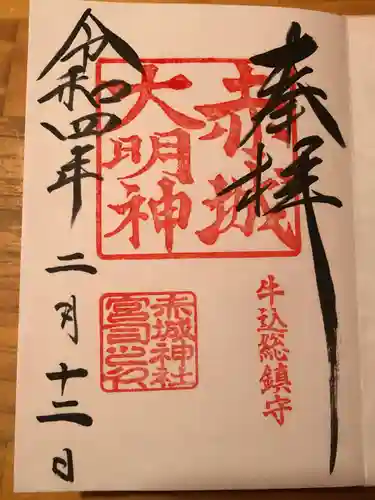 奉拝
赤城
大明神
牛込総鎮守
赤城神社
宮司之印
令和四年
二月十二日